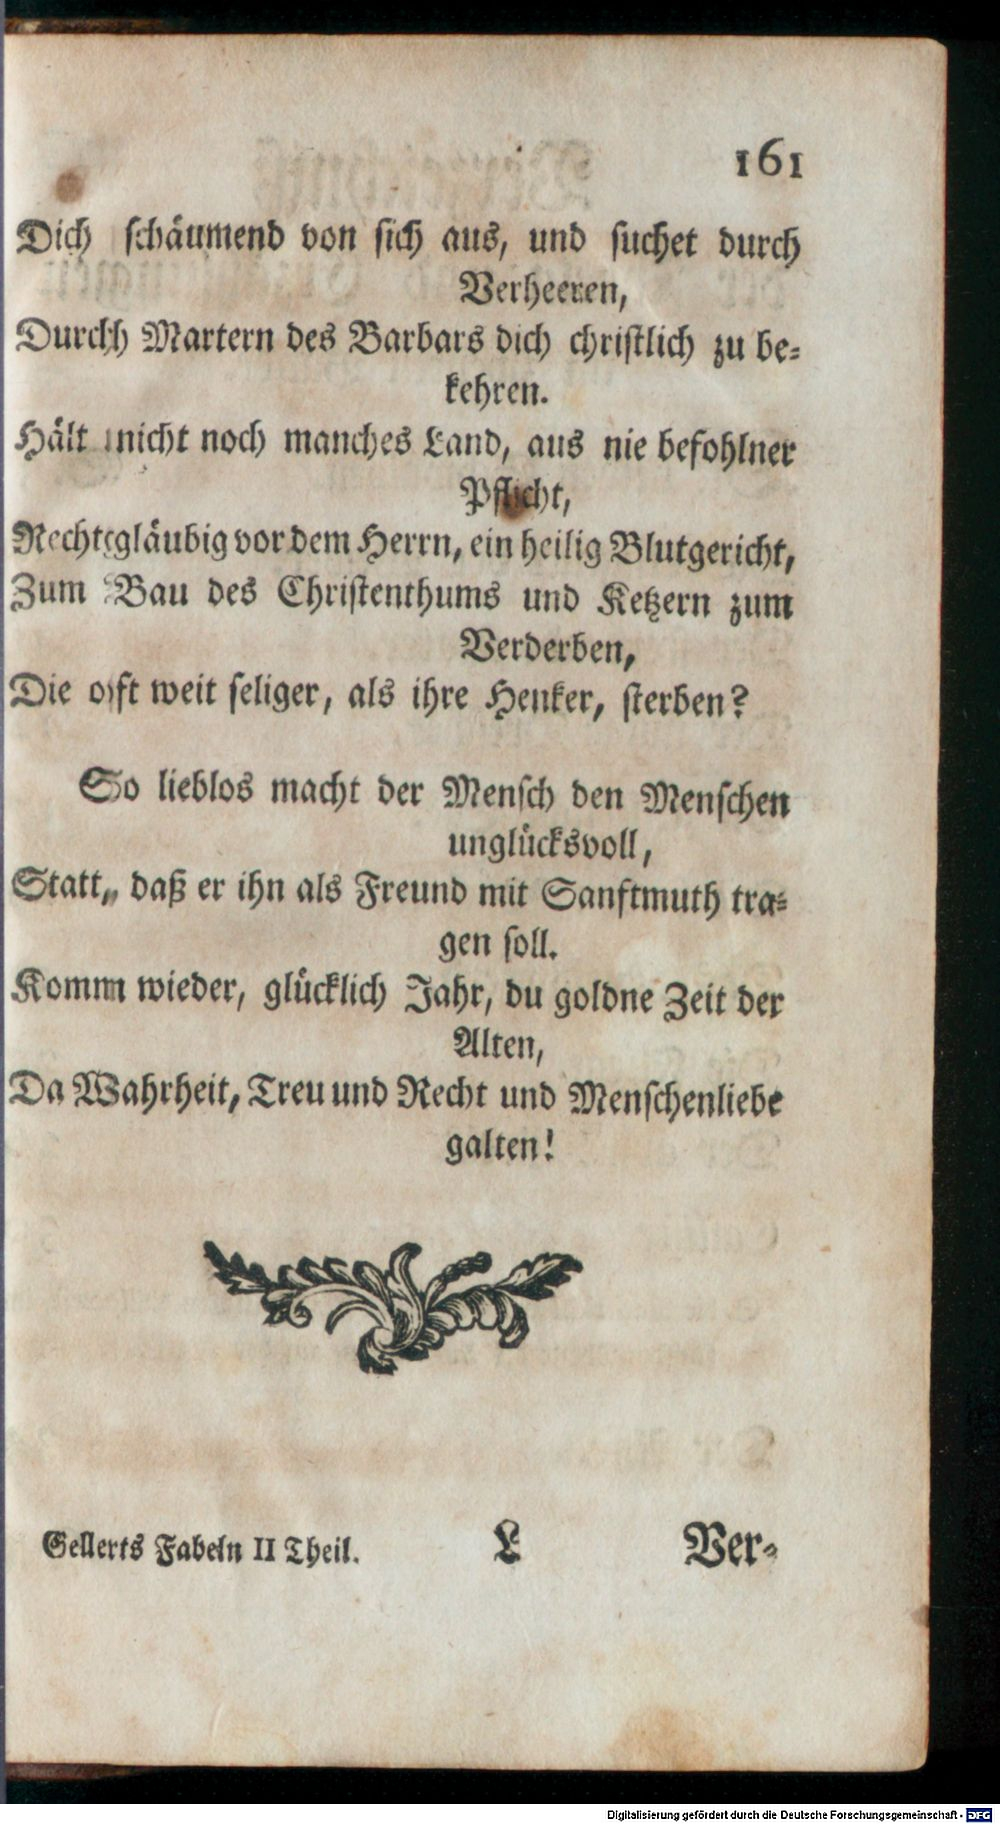 161
Dich schäumend von sich aus, und suchet durch
Verheeren,
Durch Martern des Barbars dich christlich zu be-
kehren.
Hält nicht noch manches Land, aus nie befohlner
Pflicht,
Rechtgläubig vor dem Herrn, ein heilig Blutgericht,
Zum Bau des Christenthums und Ketzern zum
Verderben,
Die oft weit seliger, als ihre Henker, sterben?
So lieblos macht der Mensch den Menschen
unglücksvoll,
Statt, daß er ihn als Freund mit Sanftmuth tra-
gen soll.
Komm wieder, glücklich Jahr, du goldne Zeit der
Alten,
Da Wahrheit, Treu und Recht und Menschenliebe
galten!
Gellerts Fabeln II Theil. L Ver-
Digitalisierung gefördert durch die Deutsche Forschungsgemeinschaft - DFG